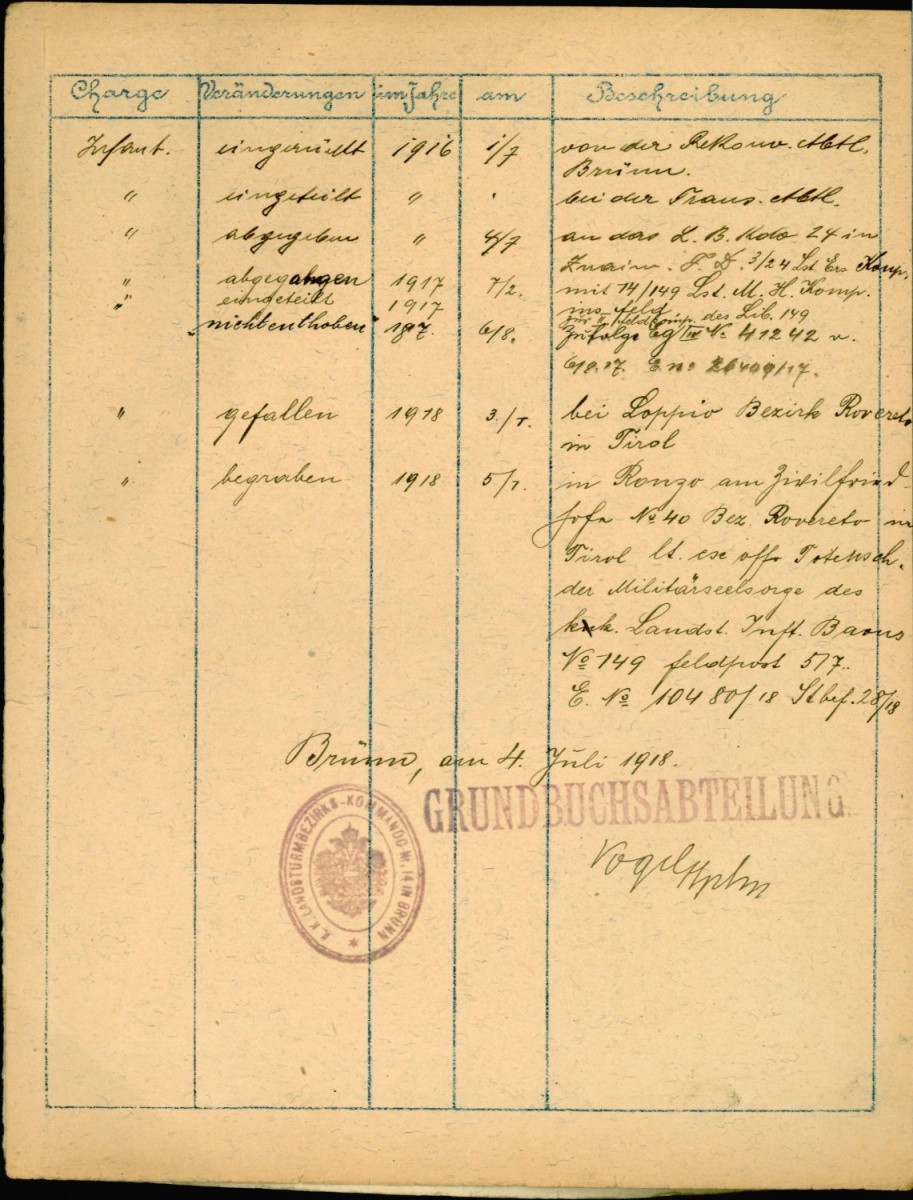 Charge Veränderungen im Jahre am Beschreibung
Infant. eingerückt 1916 1/7 von der Rekonv. Abtl.
Brünn.
" eingeteilt " " bei der Trans. Abtl.
" abgegeben " 4/7 an das L. B. Kdo 24 in
Znaim. T. D. 3/24 Lst Ers Komp.
" abgegangen 1917 7/2. mit 14/149 Lst. M. H. Komp.
" eingeteilt 1917 ins Feld
zur Feldkomp. des Lib. 149
" nicht enthoben" 1917. 6/8. Zufolge No 41242 v.
6/8.17. E no 26409/17.
" gefallen 1918 3./5. bei Loppio Bezirk Rovereto
in Tirol
" begraben 1918 5/5. in Ronzo am Zivilfried-
hofe No 40 Bez. Rovereto in
Tirol lt. ex offo Totensch.
der Militärseelsorge des
kuk. Landst. Inft. Baons
No 149 Feldpost 517.
E. No 10480/18 Stbef. 28/18
Brünn, am 4. Juli 1918.
GRUNDBUCHSABTEILUNG
K.K. LANDSTURMBEZIRKS-KOMMANDO Nr. 14 IN BRÜNN
Vogel